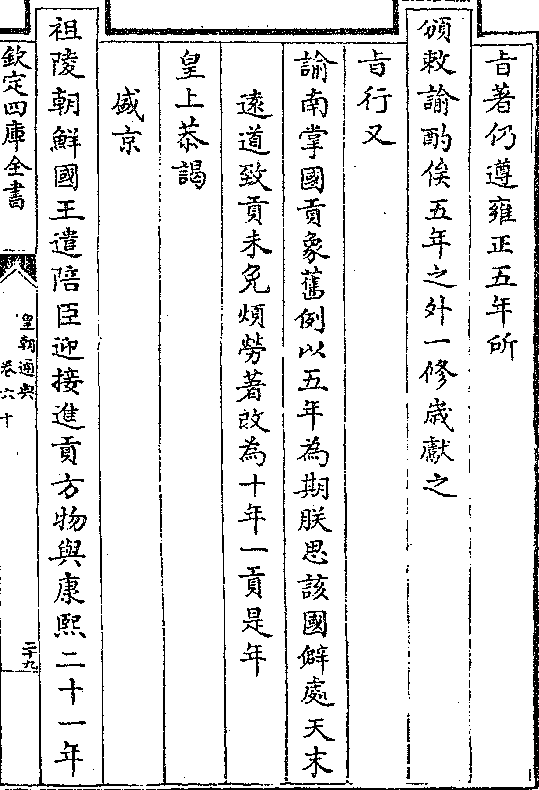 旨著仍遵雍正五年所
頒敕諭酌俟五年之外一修歲獻之
旨行又
諭南掌國貢象舊例以五年為期朕思該國僻處天末
遠道致貢未免煩勞著改為十年一貢是年
皇上恭謁
盛京
祖陵朝鮮國王遣陪臣迎接進貢方物與康熙二十一年
欽定四庫全書
皇朝通典
卷六十
二十九